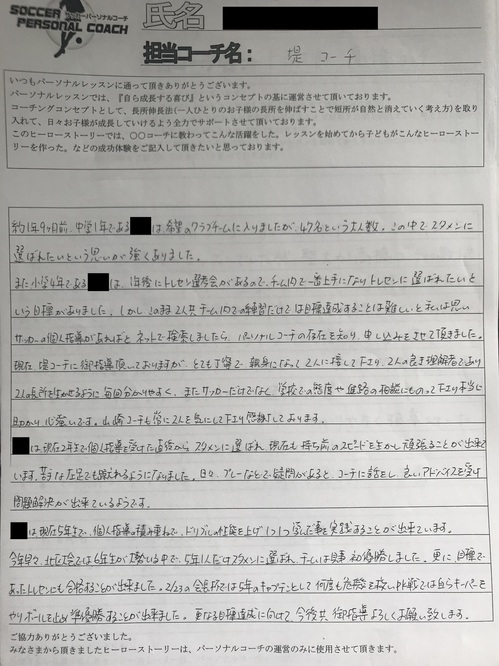 SOCCER サッカーパーソナルコーチ
PERSONAL COACH
氏名
担当コーチ名: 堤 コーチ
いつもパーソナルレッスンに通って頂きありがとうございます。
パーソナルレッスンでは、『自ら成長する喜び』というコンセプトの基に運営させて頂いております。
コーチングコンセプトとして、長所伸長法(一人ひとりのお子様の長所を伸ばすことで短所が自然と消えていく考え方)を取り
入れて、日々お子様が成長していけるよう全力でサポートさせて頂いております。
このヒーローストーリーでは、〇〇コーチに教わってこんな活躍をした。レッスンを始めてから子どもがこんなヒーロースト
ーリーを作った。などの成功体験をご記入して頂きたいと思っております。
約1年9ヶ月前、中学1年である は、希望のクラブチームに入りましたが、47名という大人数。この中でスタメンに
選ばれたいという思いが強くありました。
また小学4年である は、1年後にトレセン選考会があるので、チーム内で一番上手になりトレセンに選ばれたいと
いう目標がありました。しかし、このまま2人共チーム内での練習だけでは目標達成することは難しいと私は思い
サッカーの個人指導があればとネットで検索しましたら、パーソナルコーチの存在を知り、申し込みをさせて頂きました。
現在、堤コーチに御指導頂いておりますが、とても丁寧で、親身になって2人に接して下さり、2人の良き理解者であり
2人の長所を生かせるように毎回分かりやすく、またサッカーだけでなく、学校での態度や進路の相談にものって下さり本当に
助かり、心強いです。山崎コーチも常に2人を気にして下さり感謝しております。
は現在2年生で、個人指導を受けた直後からスタメンに選ばれ、現在も持ち前のスピードを生かし頑張ることが出来て
います。苦手な左足でも蹴れるようになりました。日々、プレーなどで疑問があると、コーチに話をし、良いアドバイスを受け
問題解決が出来ているようです。
は現在5年生で、個人指導の積み重ねで、ドリブルの性能を上げつつ学んだ事を実践することが出来ています。
今年早々、北区大会では6年生が大勢いる中で、5年1人だけスタメンに選ばれ、チームは見事初優勝しました。更に、目標で
あったトレセンにも合格することが出来ました。2/23の 大会では5年のキャプテンとして何度も危機を救い、PK戦では自らキーパーを
やりボールを止め準優勝することが出来ました。更なる目標達成に向けて、今後共、御指導よろしくお願い致します。
ご協力ありがとうございました。
みなさまから頂きましたヒーローストーリーは、パーソナルコーチの運営のみに使用させて頂きます。